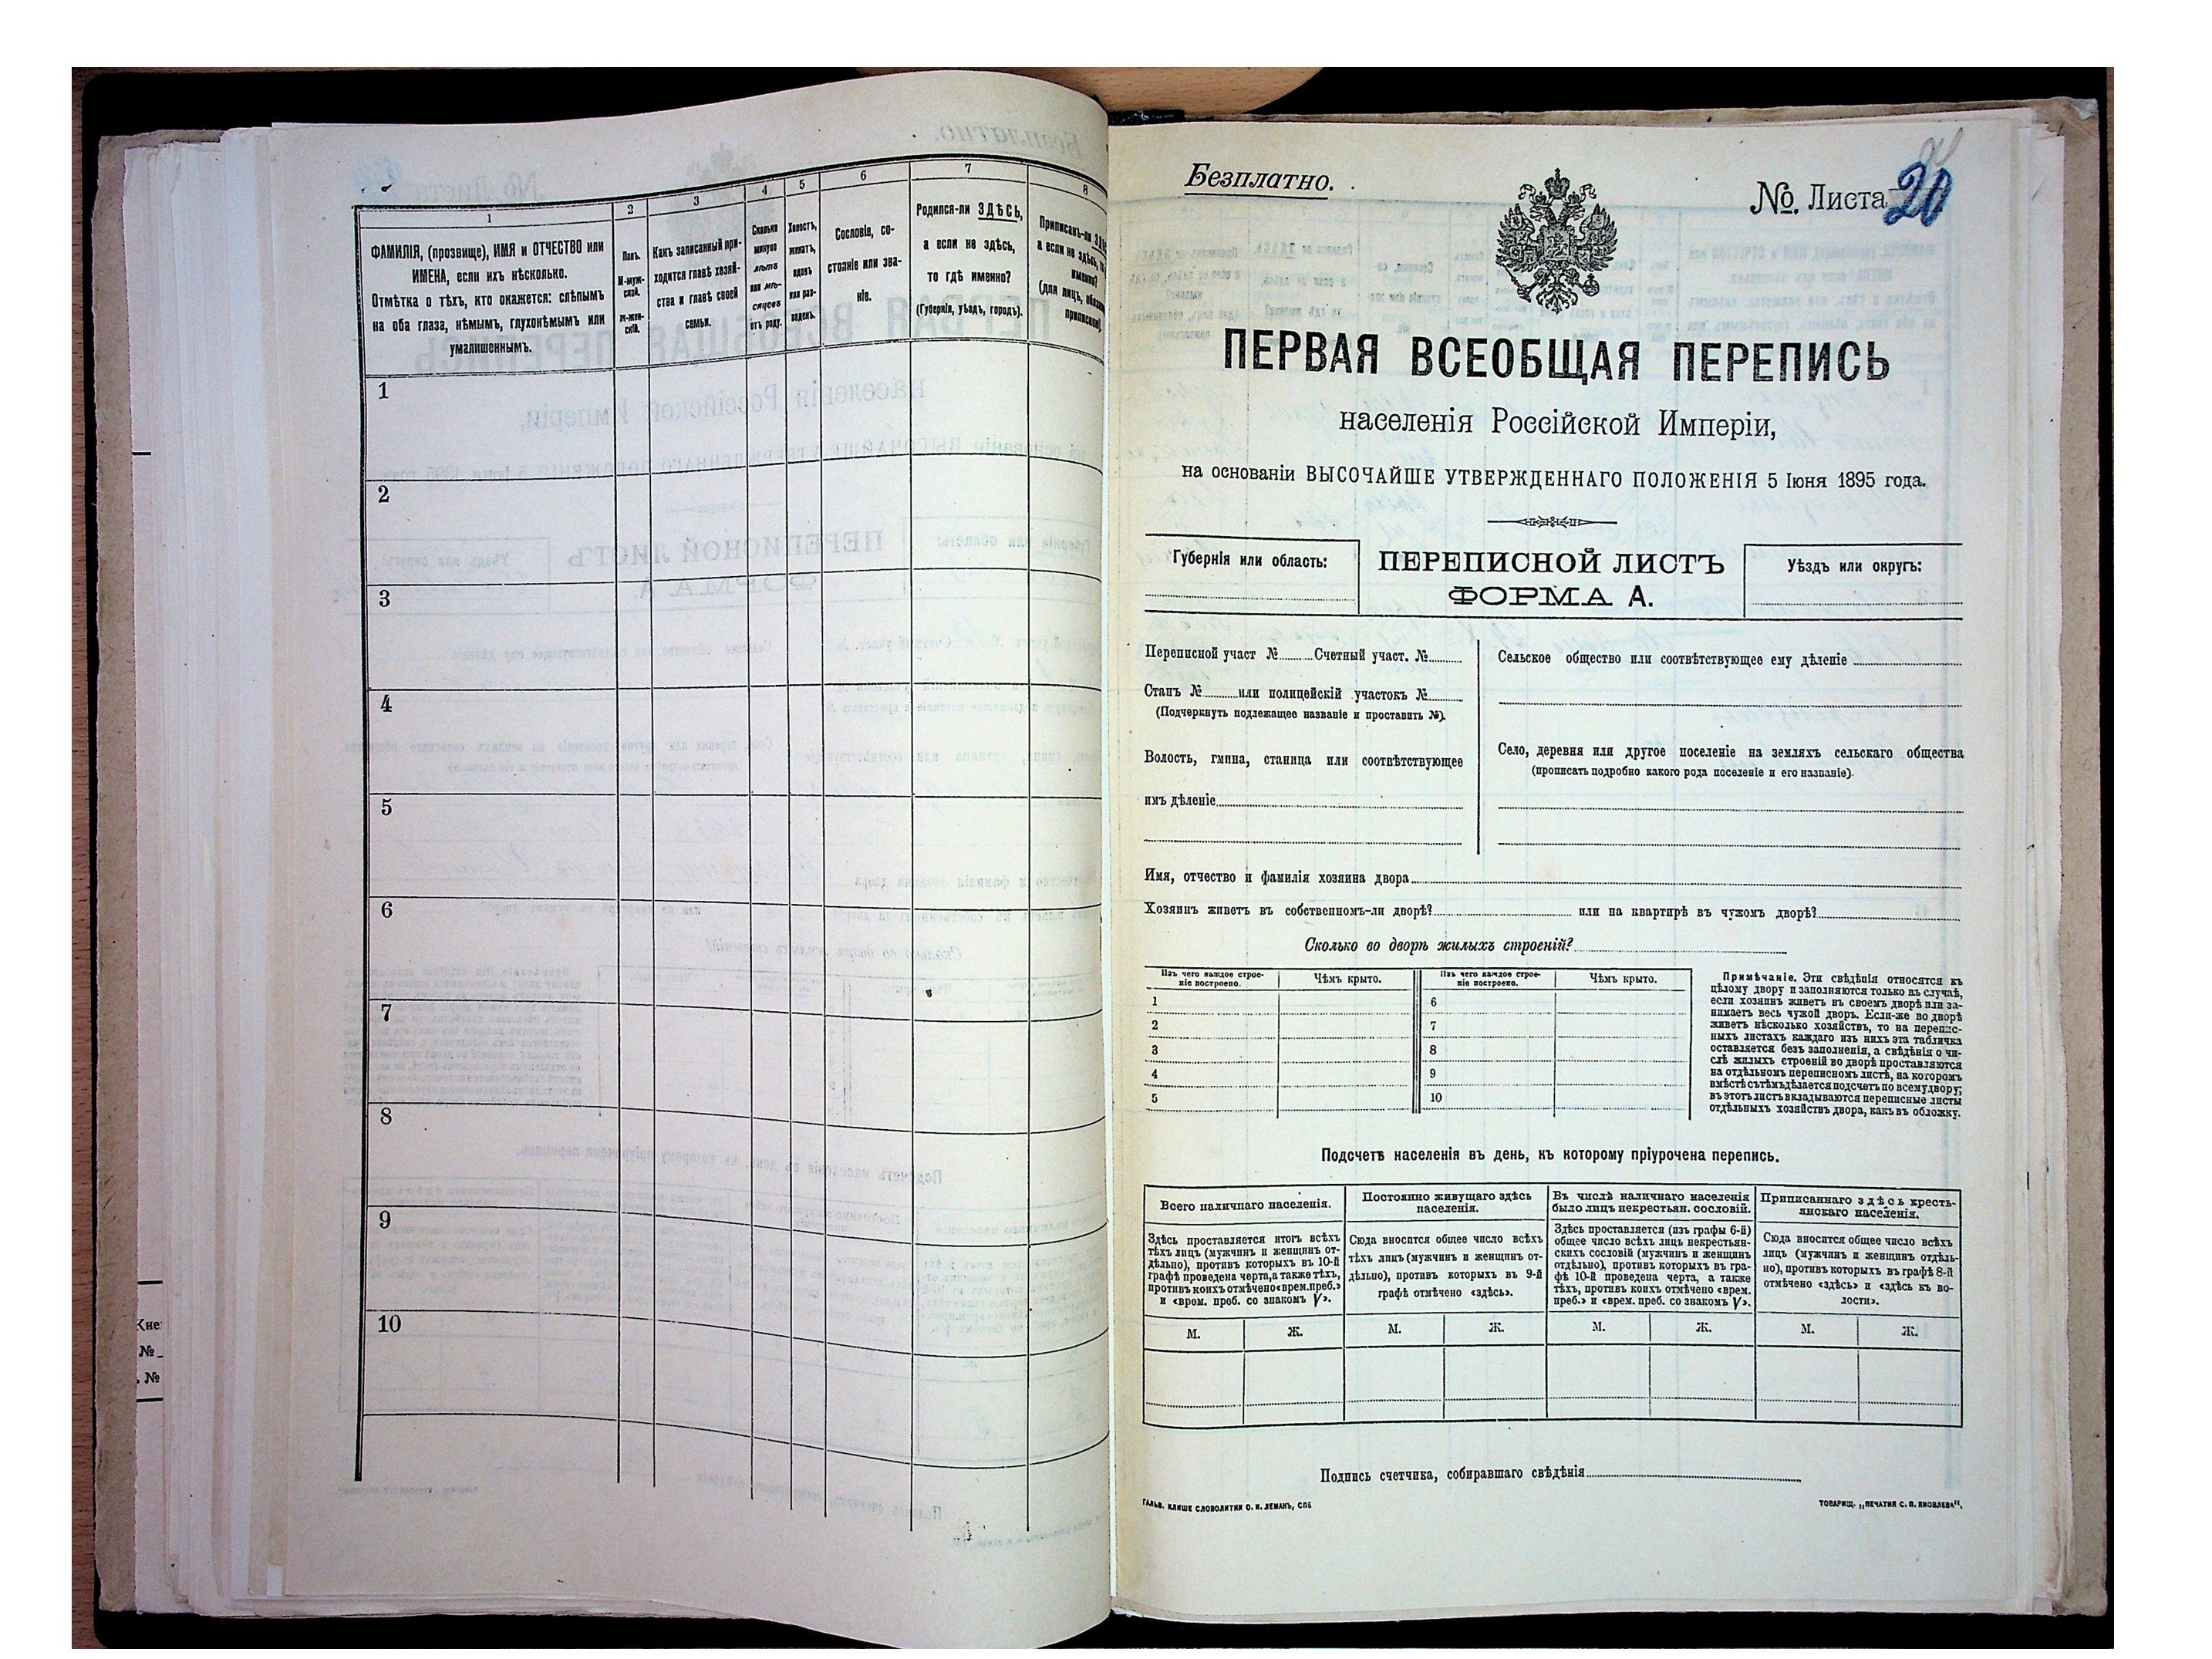 1
2
3
4
5
6
7
8
ФАМИЛІЯ, (прозвище), ИМЯ и ОТЧЕСТВО или
ИМЕНА, если ихъ нѣсколько.
Отмѣтка о тѣхъ, кто окажется: слѣпымъ
на оба глаза, нѣмымъ, глухонѣмымъ или
умалишеннымъ.
Полъ.
М-муж-
ской.
Ж-жен-
скій.
Какъ записанный при-
ходится главѣ хозяй-
ства и главѣ своей
семьи.
Сколько
минуло
лѣтъ
или мѣ-
сяцевъ
отъ роду.
Холостъ,
женатъ,
вдовъ
или раз-
веденъ.
Сословіе, со-
стояніе или зва-
ніе.
Родился-ли ЗДѢСЬ,
а если не здѣсь,
то гдѣ именно?
(Губернія, уѣздъ, городъ).
Приписанъ-ли
а если не здѣсь,
именно?
(для лицъ,
1
2
3
4
5
6
7
8
9
10
Безплатно.
№ Листа 20
ПЕРВАЯ ВСЕОБЩАЯ ПЕРЕПИСЬ
населенія Россійской Имперіи,
на основаніи ВЫСОЧАЙШЕ УТВЕРЖДЕННАГО ПОЛОЖЕНІЯ 5 Іюня 1895 года.
Губернія или область:
ПЕРЕПИСНОЙ ЛИСТЪ
ФОРМА А.
Уѣздъ или округъ:
Переписной участ № Счетный участ. №
Станъ № или полицейскій участокъ №
(Подчеркнуть подлежащее названіе и проставить №).
Волость, гмина, станица или соотвѣтствующее
имъ дѣленіе
Сельское общество или соотвѣтствующее ему дѣленіе
Село, деревня или другое поселеніе на земляхъ сельскаго общества
(прописать подробно какого рода поселеніе и его названіе).
Имя, отчество и фамилія хозяина двора
Хозяинъ живетъ въ собственномъ-ли дворѣ? или на квартирѣ въ чужомъ дворѣ?
Сколько во дворѣ жилыхъ строеній?
Изъ чего каждое строе-
ніе построено.
Чѣмъ крыто.
Изъ чего каждое строе-
ніе построено.
Чѣмъ крыто.
1 6
2 7
3 8
4 9
5 10
Примѣчаніе. Эти свѣдѣнія относятся къ
цѣлому двору и заполняются только въ случаѣ,
если хозяинъ живетъ въ своемъ дворѣ или за-
нимаетъ весь чужой дворъ. Если-же во дворѣ
живетъ нѣсколько хозяйствъ, то на перепис-
ныхъ листахъ каждаго изъ нихъ эта табличка
оставляется безъ заполненія, а свѣдѣнія о чи-
слѣ жилыхъ строеній во дворѣ проставляются
на отдѣльномъ переписномъ листѣ, на которомъ
вмѣстѣ съ тѣмъ дѣлается подсчетъ по всему двору;
въ этотъ листъ вкладываются переписные листы
отдѣльныхъ хозяйствъ двора, какъ въ обложку.
Подсчетъ населенія въ день, къ которому пріурочена перепись.
Всего наличнаго населенія.
Здѣсь проставляется итогъ всѣхъ
тѣхъ лицъ (мужчинъ и женщинъ от-
дѣльно), противъ которыхъ въ 10-й
графѣ проведена черта, а также тѣхъ,
противъ коихъ отмѣчено «врем. преб.»
и «врем. преб. со знакомъ V».
Постоянно живущаго здѣсь
населенія.
Сюда вносится общее число всѣхъ
тѣхъ лицъ (мужчинъ и женщинъ от-
дѣльно), противъ которыхъ въ 9-й
графѣ отмѣчено «здѣсь».
Въ числѣ наличнаго населенія
было лицъ некрестьян. сословій.
Здѣсь проставляется (изъ графы 6-й)
общее число всѣхъ лицъ некрестьян-
скихъ сословій (мужчинъ и женщинъ
отдѣльно), противъ которыхъ въ гра-
фѣ 10-й проведена черта, а также
тѣхъ, противъ коихъ отмѣчено «врем.
преб.» и «врем. преб. со знакомъ V».
Приписаннаго здѣсь кресть-
янскаго населенія.
Сюда вносится общее число всѣхъ
лицъ (мужчинъ и женщинъ отдѣль-
но), противъ которыхъ въ графѣ 8-й
отмѣчено «здѣсь» и «здѣсь къ во-
лости».
М. Ж. М. Ж. М. Ж. М. Ж.
Подпись счетчика, собиравшаго свѣдѣнія
ГАЛЬВ. КЛИШЕ СЛОВОЛИТНИ О. И. ЛЕМАНЪ, СПБ
ТОВАРИЩ. „ПЕЧАТНЯ С. П. ЯКОВЛЕВА“.